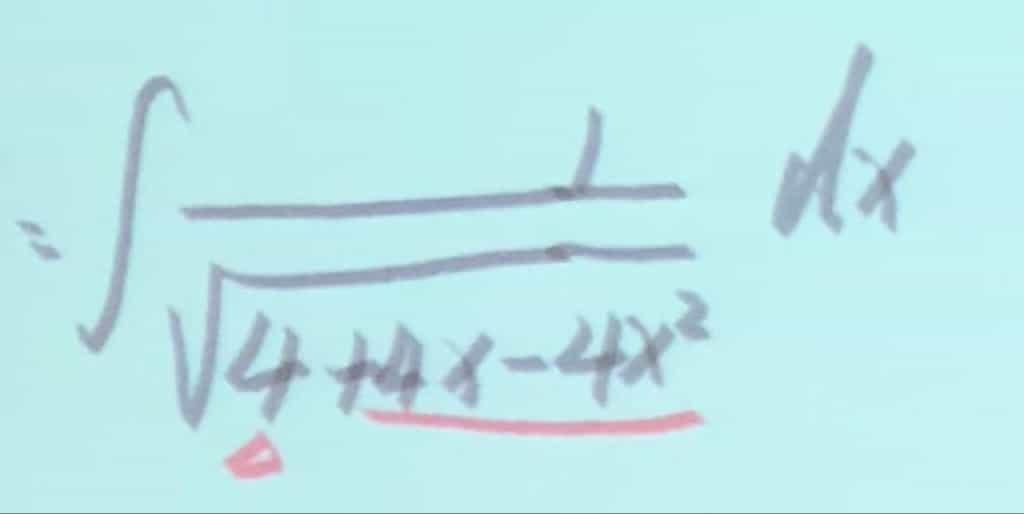 = ∫ 1/√(4+4x-4x²) dx